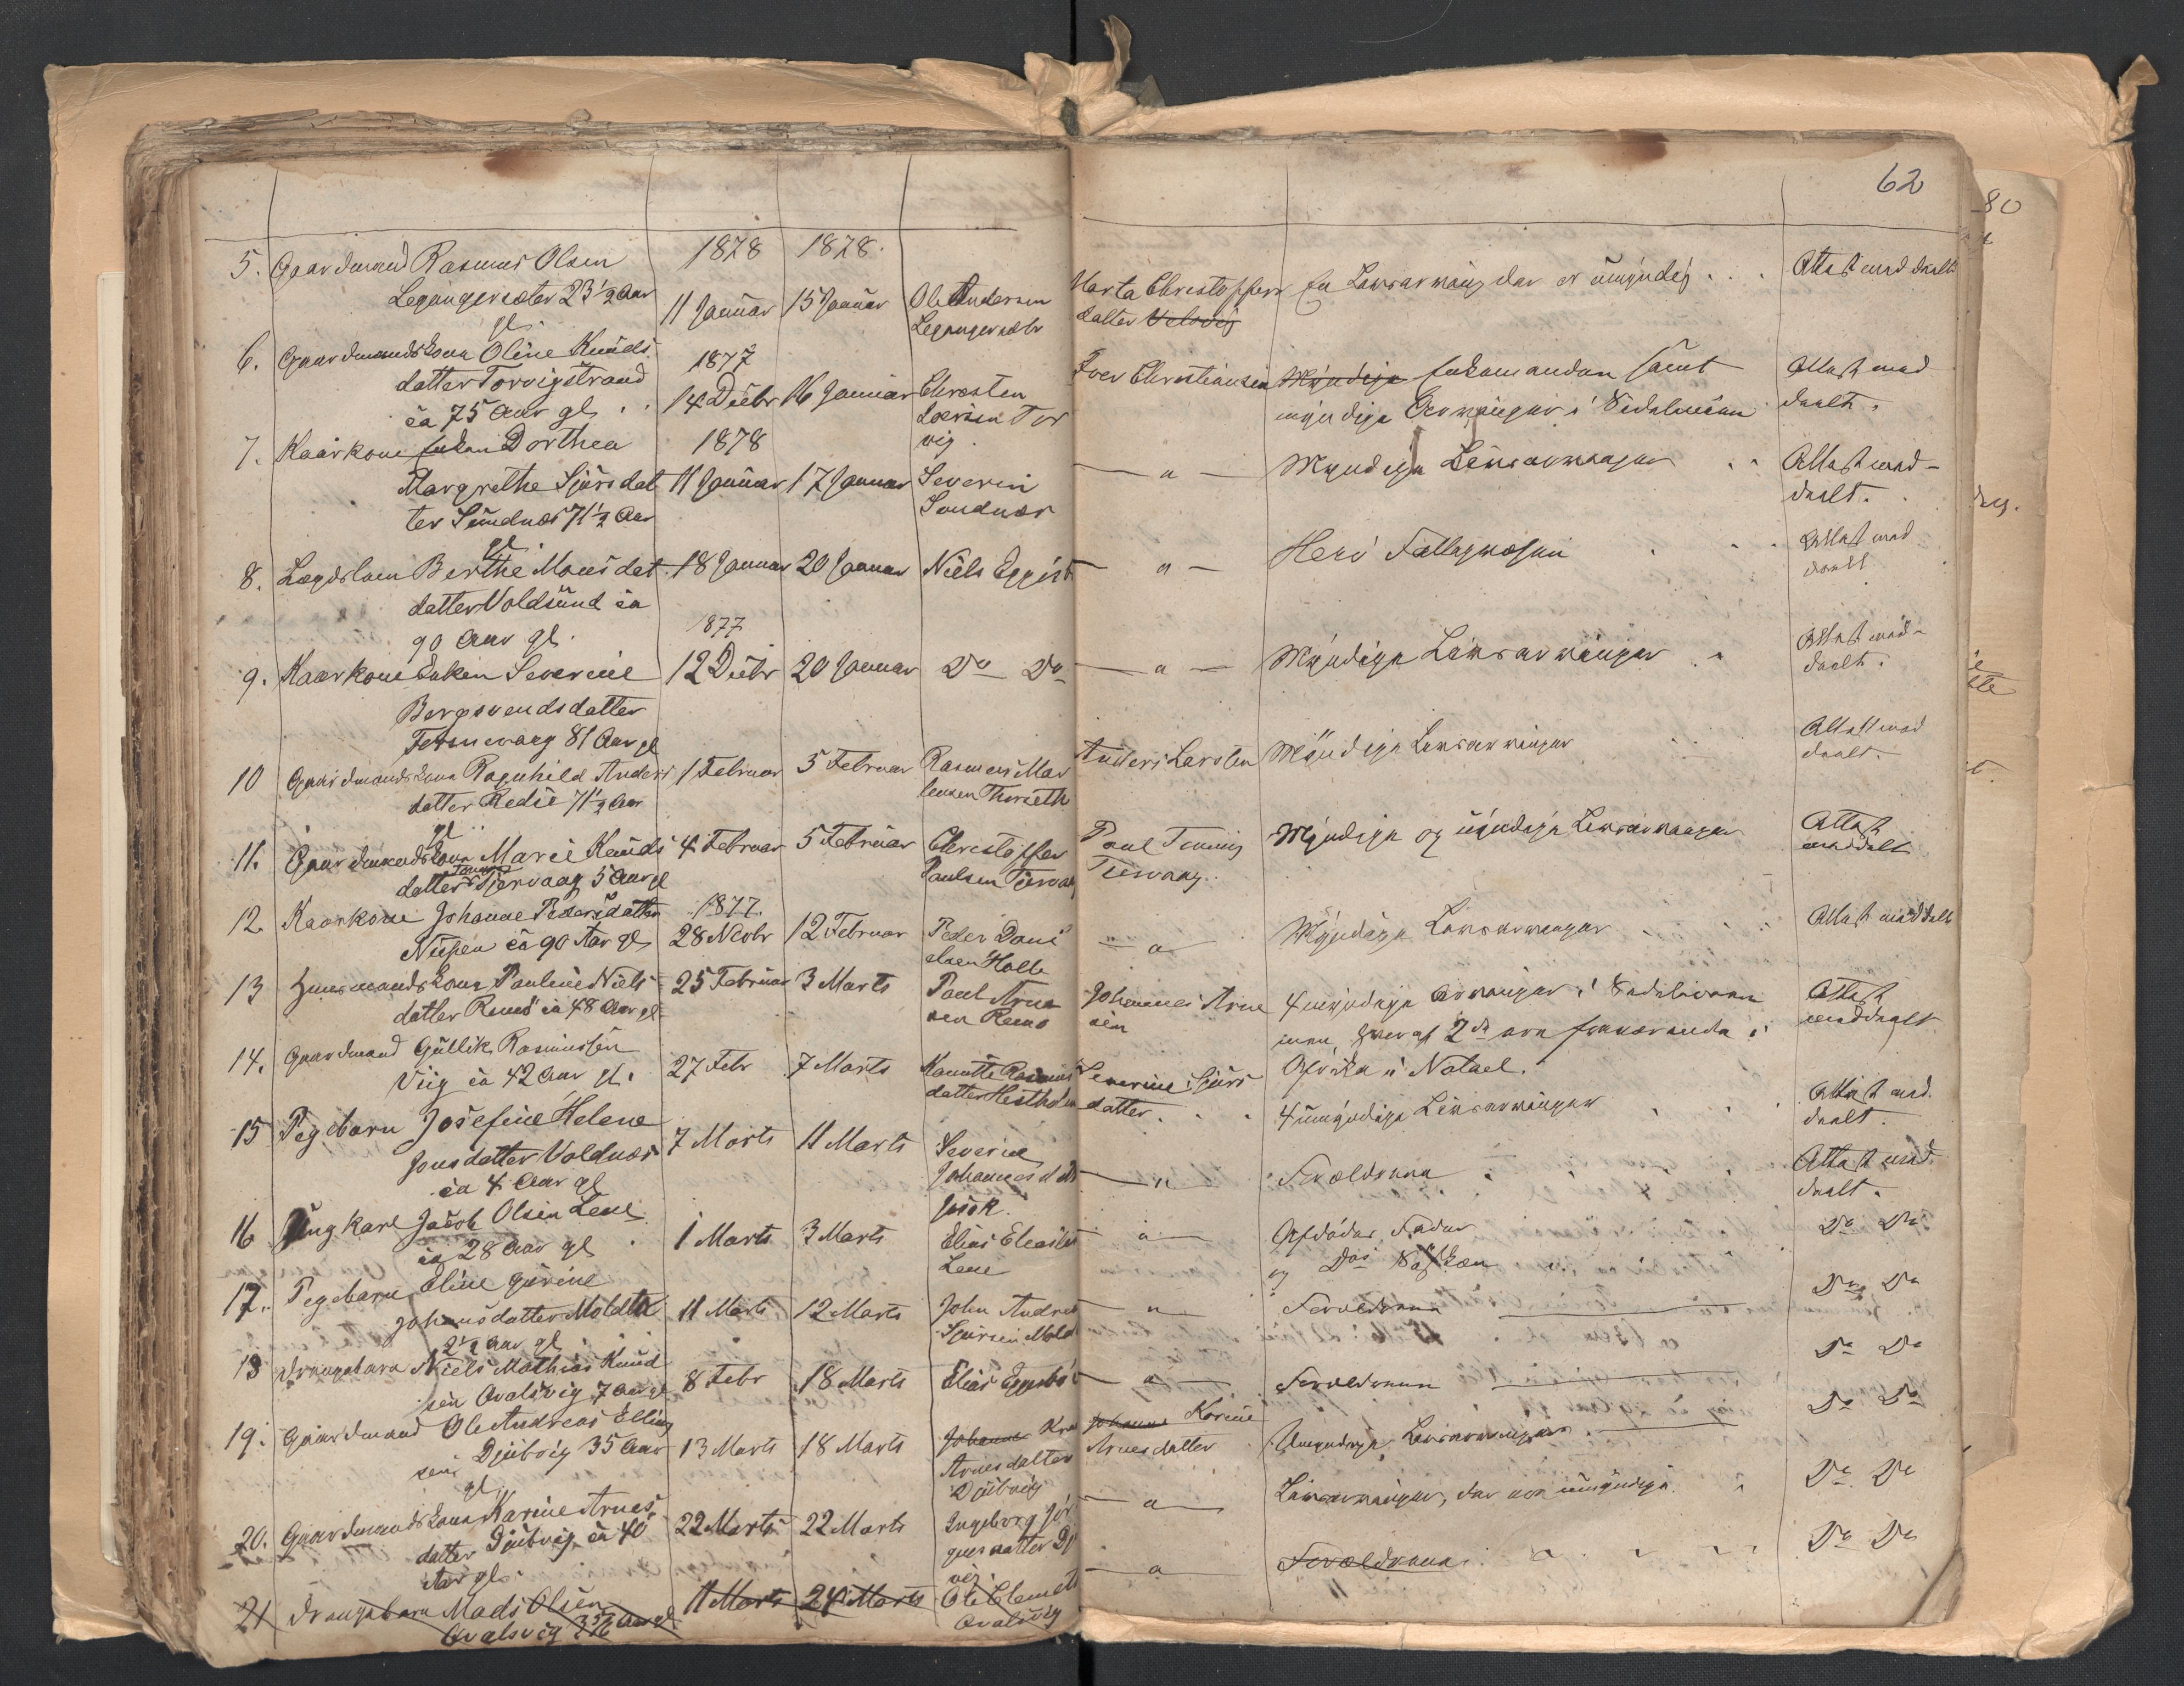 62
1878 1878.
5. Gaardmand Rasmus Olsen
Leganger sæter 23½ Aar
gl.
11 Januar 15 Januar
Ole Andersen
Leganger sæter
Marta Christoffers
datter
En Livsarving der er umyndig . . .
Attest meddelt
6. Gaardmandskone Oline Knuds
datter Torvigstrand
ca 75 Aar gl. .
1877
14 Decbr 16 Januar
Christen
Larsen Tor
vig
Iver Christiansen
Myndige Enkemanden samt
myndige Arvinger i Sidelinien
Attest med
deelt.
7. Kaarkone Enken Dorthea
Margrethe Sjursdat
ter Sundnæs 71½ Aar
gl.
1878
11 Januar 17 Januar
Severin
Sundnæs
— " —
Myndige Livsarvinger
Attest med-
deelt.
8. Lægdslem Berthe Monsdat
datter Voldsund ca
90 Aar gl.
18 Januar 20 Januar
Niels Eggesb
— " —
Herø Fattigvæsen
Attest med
deelt
9. Kaarkone Enken Severine
Bergsvendsdatter
81 Aar gl
1877
12 Decbr 20 Januar
Do Do
— " —
Myndige Livsarvinger
Attest med-
deelt.
10 Gaardmandskone Ragnhild Anders
datter Redse 71½ Aar
gl
1 Februar 5 Februar
Rasmus Mar
Thorseth
Anders Larsen
Myndige Livsarvinger
Attest med
deelt.
11. Gaardmandskone Marie Knuds
datter Tjervaag 5 Aar gl
4 Februar 5 Februar
Christoffer
Paulsen Tjervaag
Paul
Tjervaag.
Myndige og umyndige Livsarvinger
Attest
meddelt
12. Kaarkone Johanne Pedersdatter
ca 90 Aar gl
1877.
28 Novbr 12 Februar
Peder Dani
elsen Holle
— " —
Myndige Livsarvinger
Attest meddelt
13 Huusmandskone Pauline Niels
datter Remø ca 48 Aar gl
25 Februar 3 Marts
Paul Arne
sen Remø
Johannes Arne
sen
4 myndige Arvinger i Sidelinien
men, hvoraf 2de ere fraværende i
Afrika i Natael.
Attest
meddeelt
14. Gaardmand Gullik Rasmussen
Viig ca 42 Aar gl.
27 Febr 7 Marts
Rasmus
datter Hestholm
Severine Sjurs
datter. . .
4 umyndige Livsarvinger
Attest med
deelt.
15 Pigebarn Josefine Helene
Jonsdatter Voldnæs
ca 4 Aar gl
7 Marts 11 Marts
Severine
Johannesdatt
Jøsøk.
— " —
Forældrene
Attest med
deelt.
16 Ungkarl Jacob Olsen Leine
ca 28 Aar gl
1 Marts 3 Marts
Elias Eliasen
Leine
— " —
Afdødes Fader
og Søskenn
Do Do
17. Pigebarn Eline Gurine
Johansdatter Moldtu
2½ Aar gl
11 Marts 12 Marts
John Andreas
Sjursen Mold
— " —
Forældrene
Do Do
18 Drengebarn Niels Mathias Knud
sen Qvalsvig 7 Aar gl
8 Febr 18 Marts
Elias Eggesbø
— " —
Forældrene
Do Do
19. Gaardmand Ole Andreas Elling
sen Djubvig 35 Aar
gl.
13 Marts 18 Marts
Johanne
Arnesdatter
Djubvig
Johanne Karine
Arnesdatter
Umyndige Livsarvinger
Do Do
20. Gaardmandskone Karine Arnes
datter Djubvig ca 40
Aar gl.
22 Marts 22 Marts
Ingeborg Jør
gensdatter Dj
vig.
— " —
Livsarvinger, der ere umyndige
Do Do
21 Drengebarn Mads Olsen
Qvalsvig Aar gl
11 Marts 24 Marts
Ole Clemets
Qvalsvig
— " —
Forældrene
Do Do
80